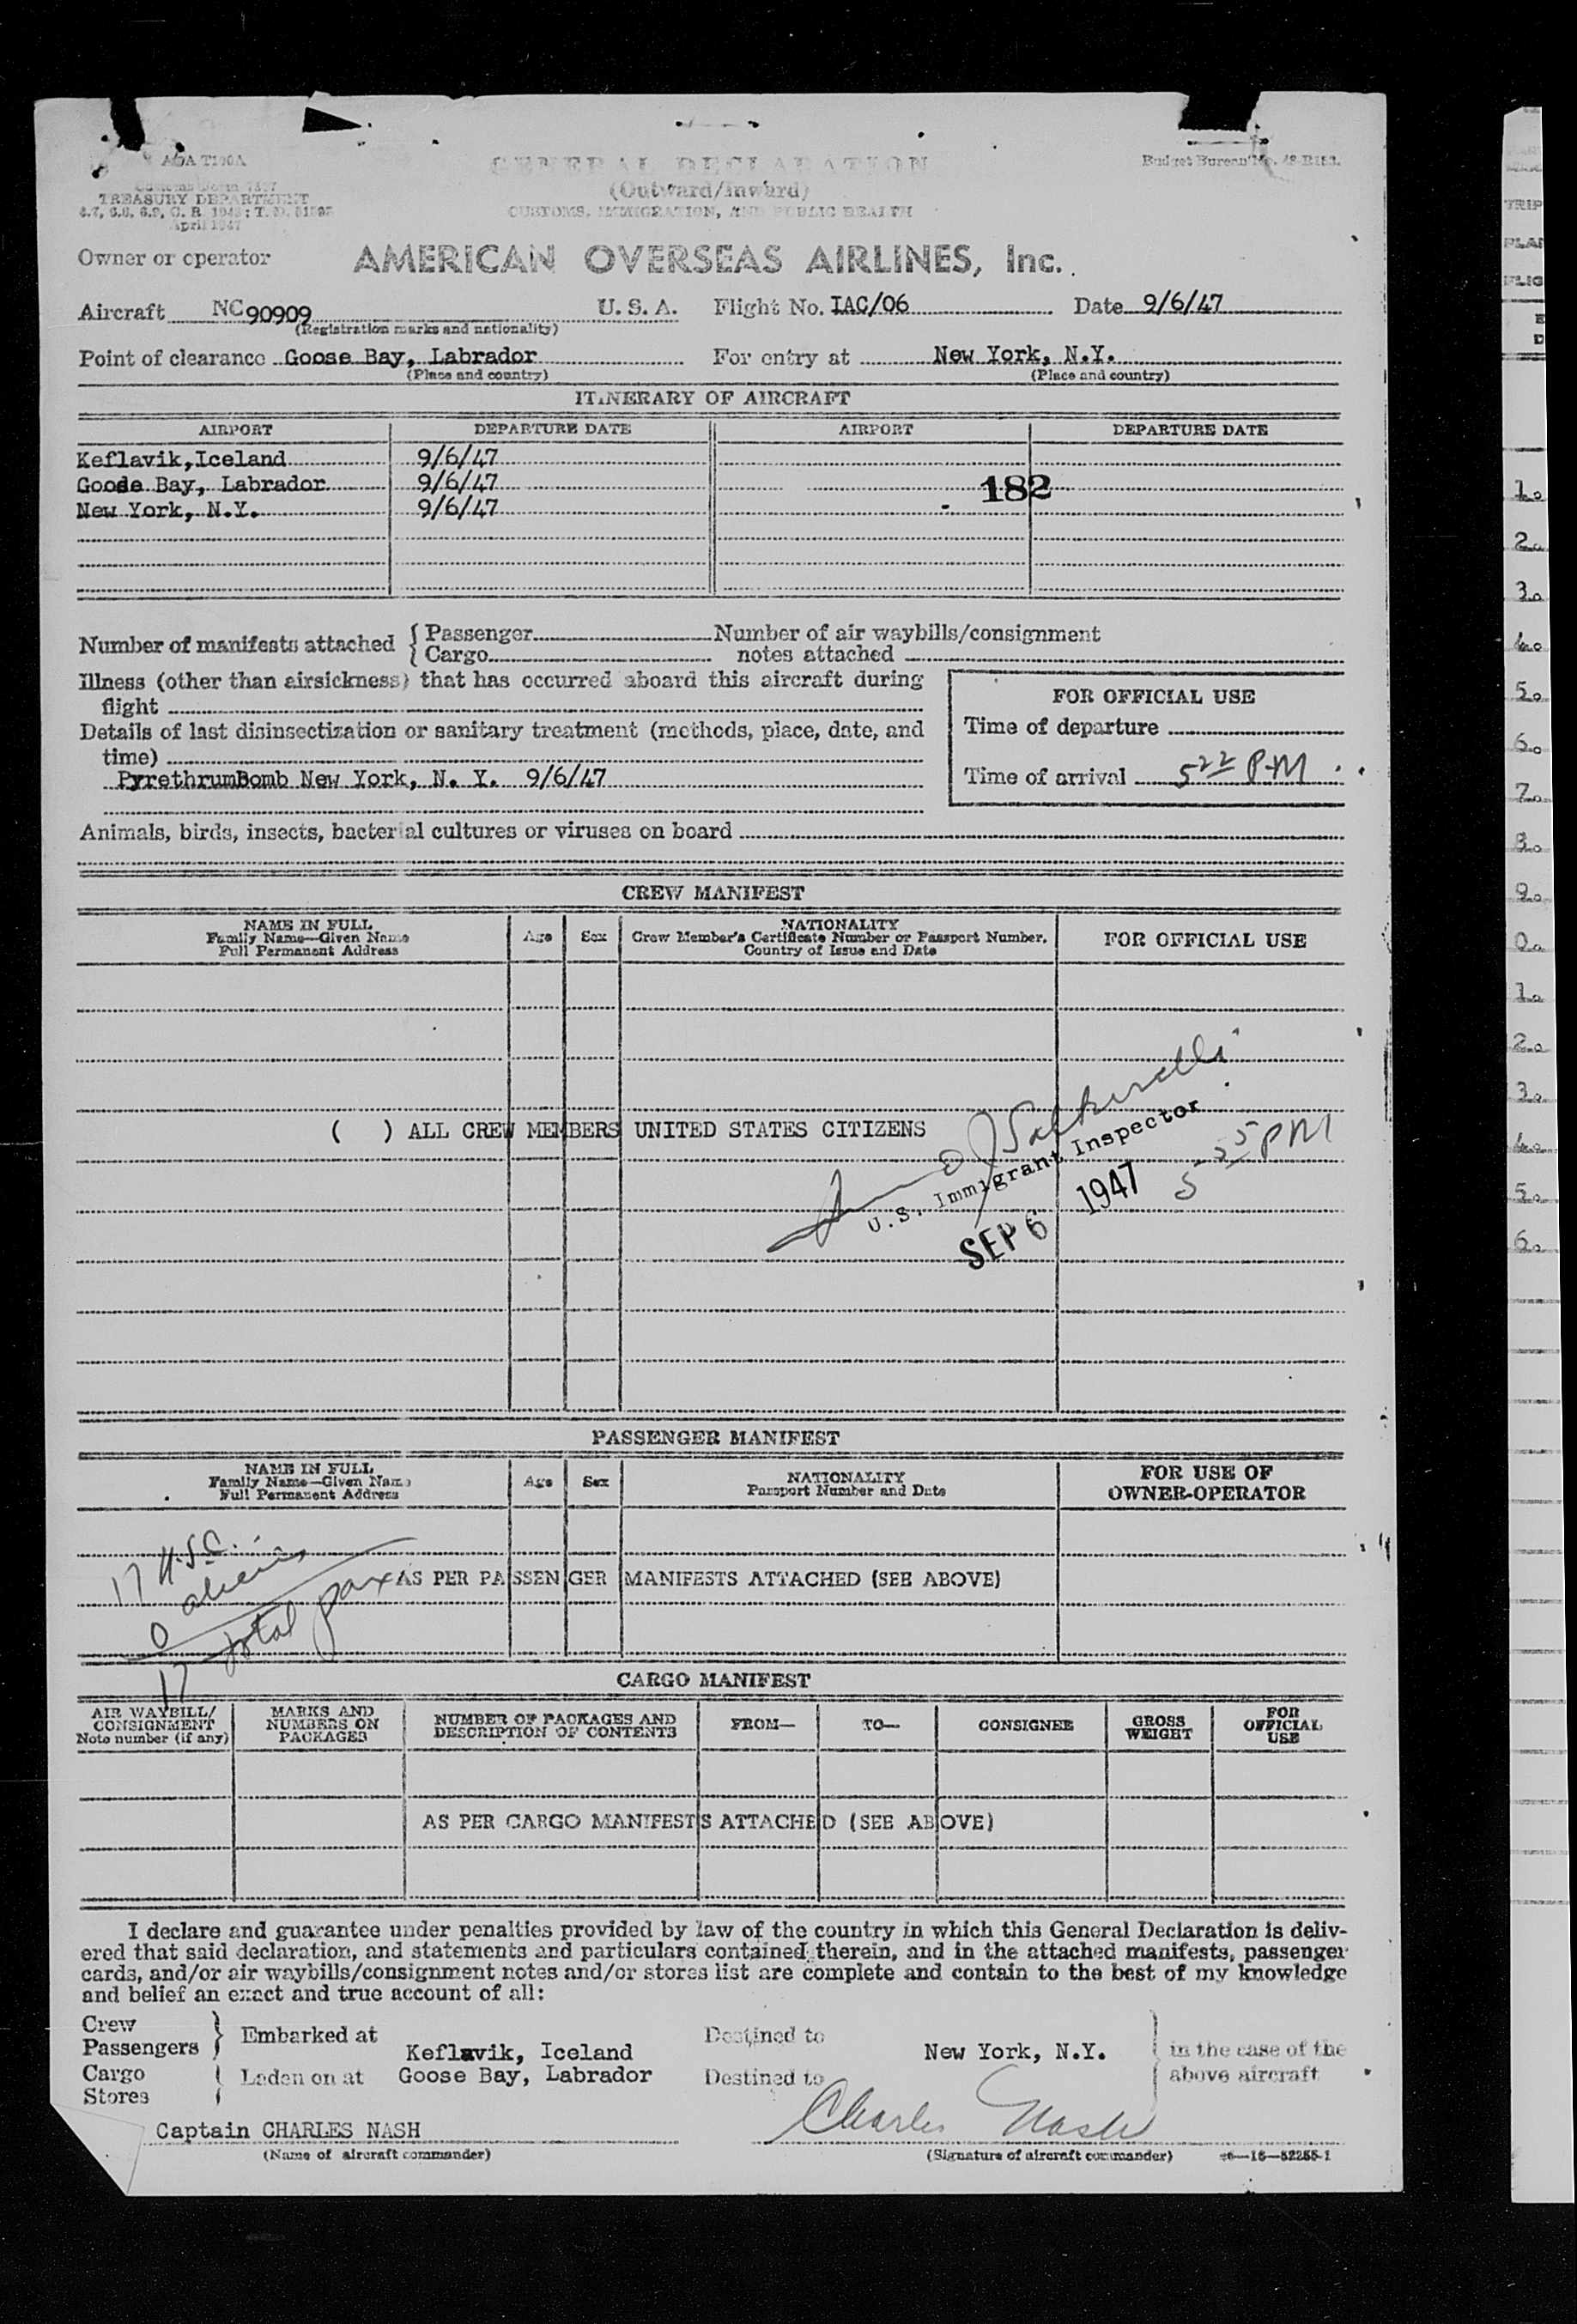 AOA T100A
Customs Form 7507
TREASURY DEPARTMENT
April 1947
GENERAL DECLARATION
(Outward/Inward)
CUSTOMS, IMMIGRATION, AND PUBLIC HEALTH
Budget Bureau No.
Owner or operator AMERICAN OVERSEAS AIRLINES, Inc.
Aircraft NC90909 U. S. A. Flight No. IAC/06 Date 9/6/47
(Registration marks and nationality)
Point of clearance Goose Bay, Labrador For entry at New York, N.Y.
(Place and country) (Place and country)
ITINERARY OF AIRCRAFT
AIRPORT DEPARTURE DATE AIRPORT DEPARTURE DATE
Keflavik,Iceland 9/6/47
Goose Bay, Labrador 9/6/47 182
New York, N.Y. 9/6/47
Number of manifests attached { Passenger Number of air waybills/consignment
Cargo notes attached
Illness (other than airsickness) that has occurred aboard this aircraft during
flight
FOR OFFICIAL USE
Details of last disinsectization or sanitary treatment (methods, place, date, and
time)
Time of departure
PyrethrumBomb New York, N. Y. 9/6/47
Time of arrival 5 22 P.M
Animals, birds, insects, bacterial cultures or viruses on board
CREW MANIFEST
NAME IN FULL
Family Name—Given Name
Full Permanent Address
Age Sex
NATIONALITY
Crew Member's Certificate Number or Passport Number,
Country of Issue and Date
FOR OFFICIAL USE
( ) ALL CREW MEMBERS UNITED STATES CITIZENS
U.S. Immigrant Inspector
SEP 6 1947
5 55 PM
PASSENGER MANIFEST
NAME IN FULL
Family Name—Given Name
Full Permanent Address
Age Sex
NATIONALITY
Passport Number and Date
FOR USE OF
OWNER-OPERATOR
17 U.S.C.
0 aliens
17 total pax
AS PER PASSENGER MANIFESTS ATTACHED (SEE ABOVE)
CARGO MANIFEST
AIR WAYBILL/
CONSIGNMENT
Note number (if any)
MARKS AND
NUMBERS ON
PACKAGES
NUMBER OF PACKAGES AND
DESCRIPTION OF CONTENTS
FROM— TO— CONSIGNEE
GROSS
WEIGHT
FOR
OFFICIAL
USE
AS PER CARGO MANIFESTS ATTACHED (SEE ABOVE)
I declare and guarantee under penalties provided by law of the country in which this General Declaration is deliv-
ered that said declaration, and statements and particulars contained therein, and in the attached manifests, passenger
cards, and/or air waybills/consignment notes and/or stores list are complete and contain to the best of my knowledge
and belief an exact and true account of all:
Crew
Passengers } Embarked at Keflavik, Iceland Destined to New York, N.Y. in the case of the
Cargo
Stores { Laden on at Goose Bay, Labrador Destined to above aircraft
Captain CHARLES NASH Charles Nash
(Name of aircraft commander) (Signature of aircraft commander) 16—52255-1
TRIP
1.
2.
3.
4.
5.
6.
7.
8.
9.
0.
1.
2.
3.
4.
5.
6.